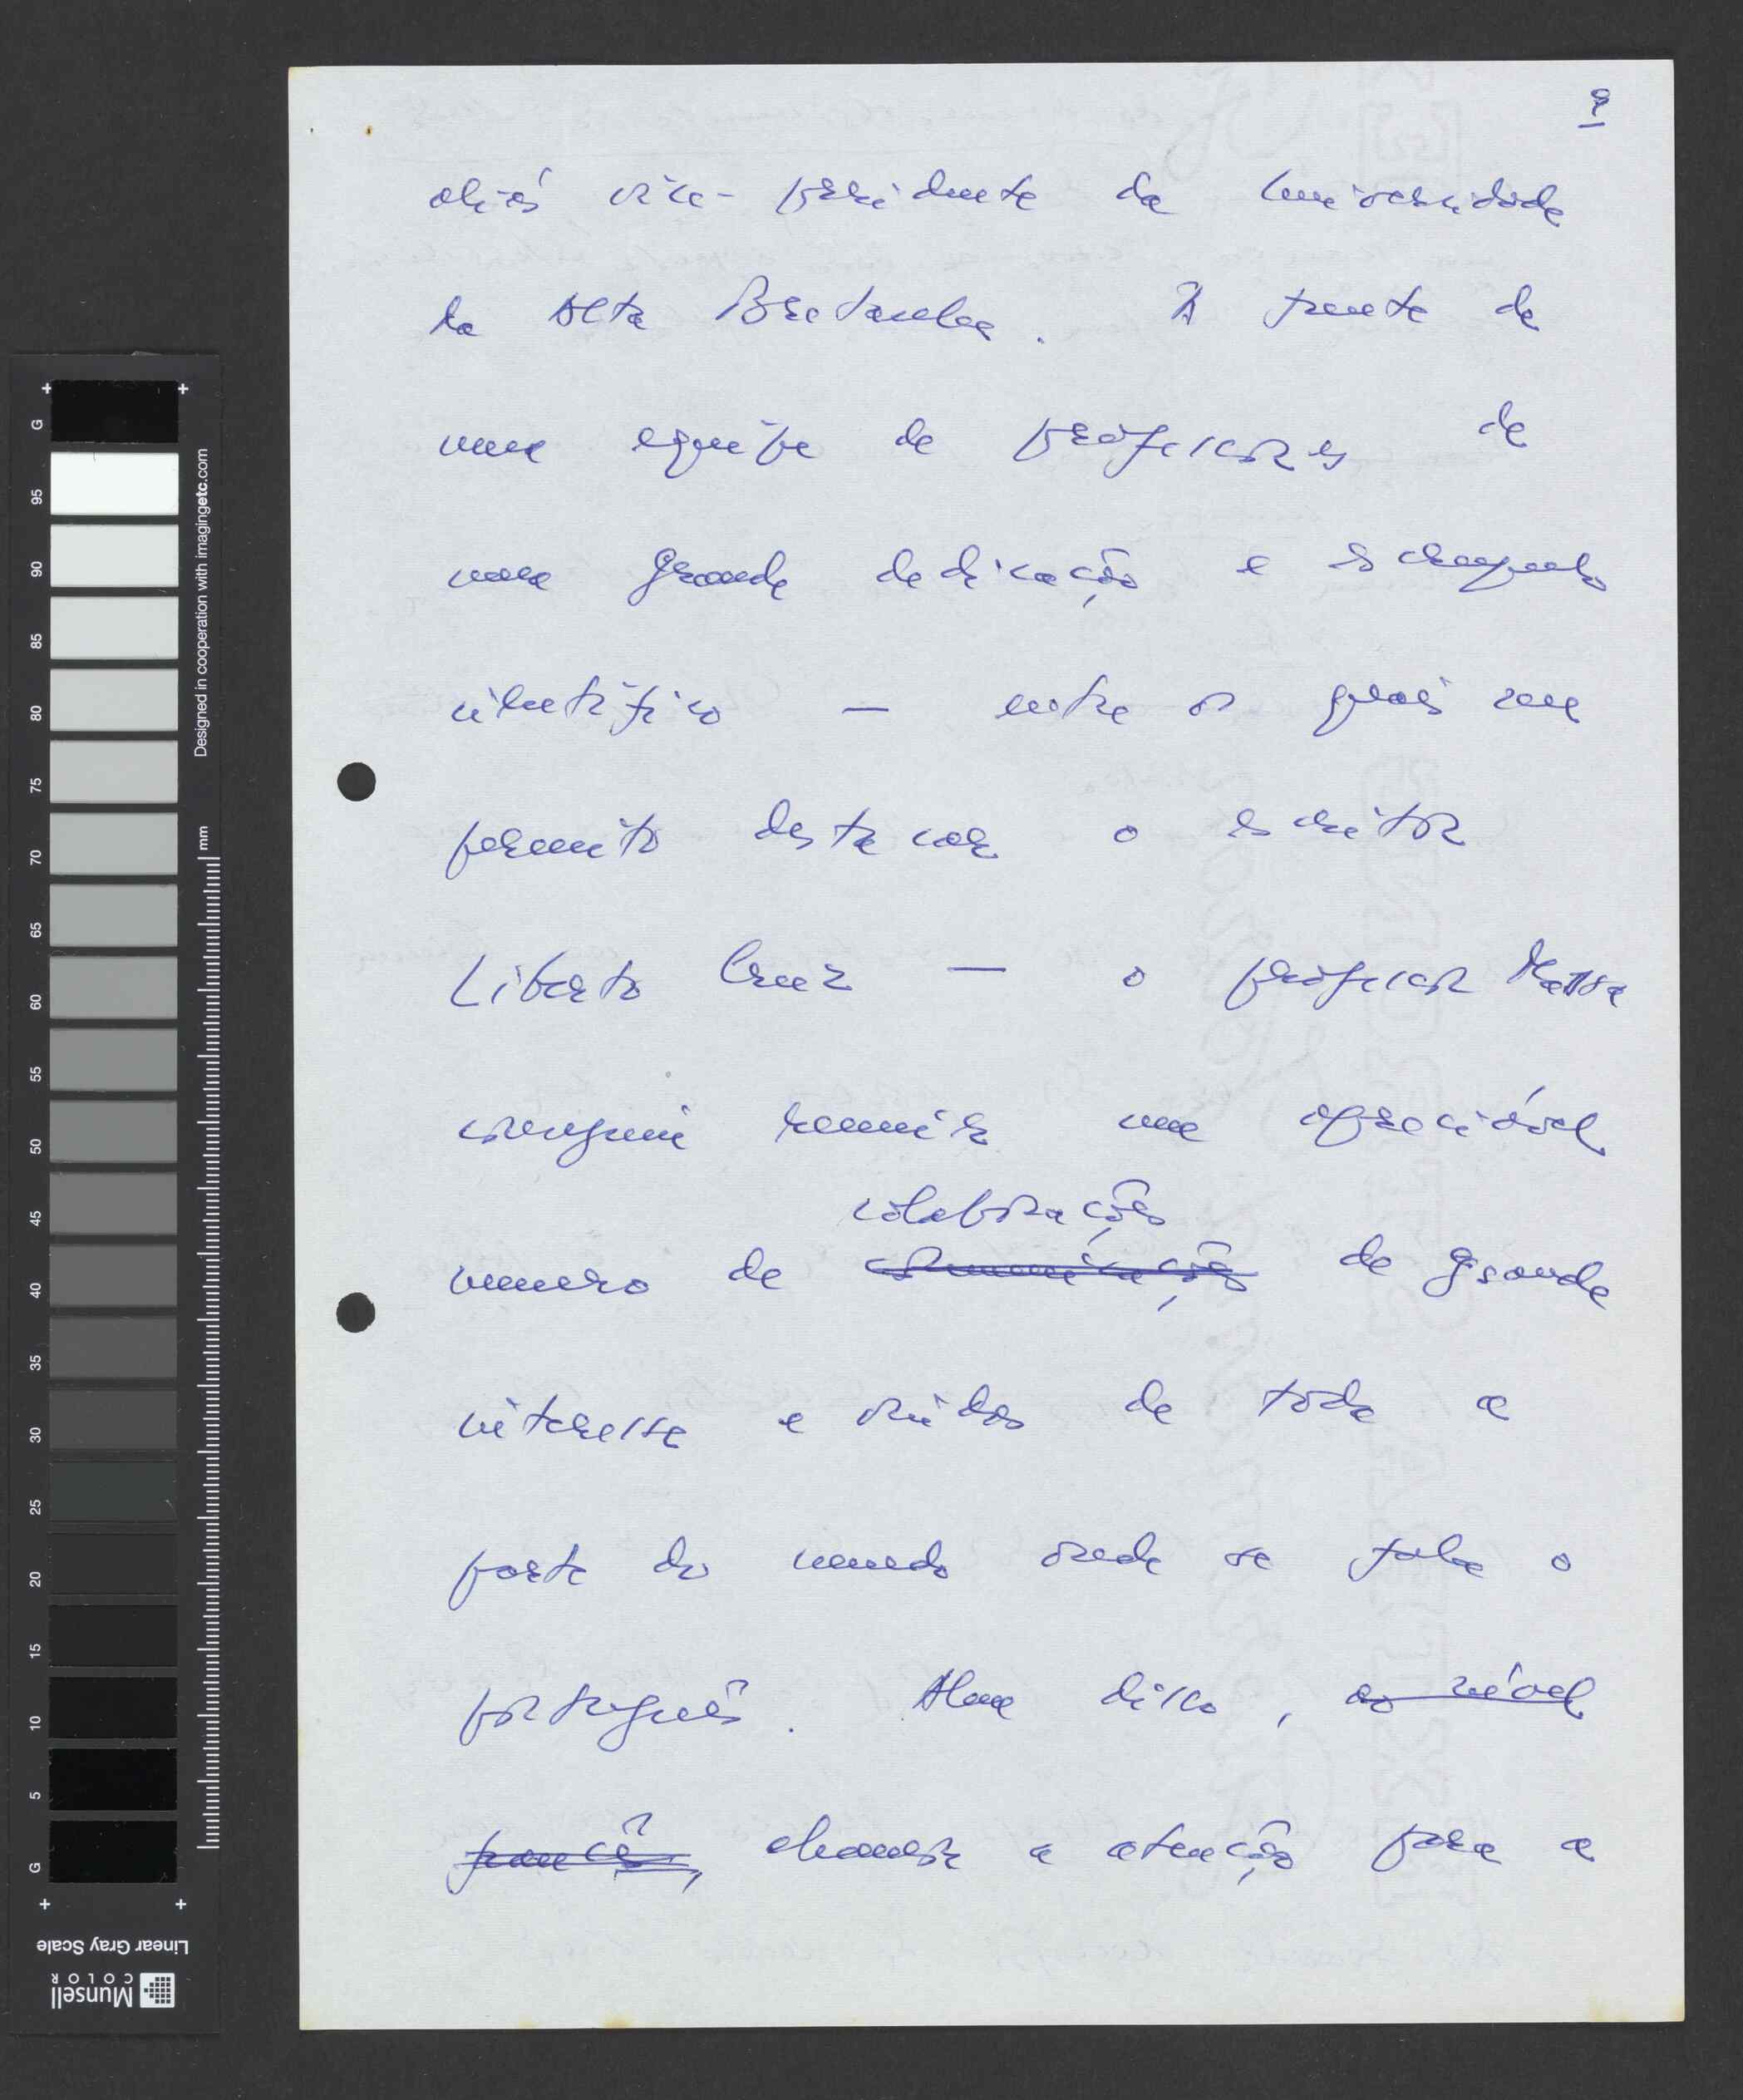 9
aliás vice-presidente da Universidade
da Alta Bretanha. À frente de
uma equipe de professores de
uma grande dedicação e escrupulo
cientifico — entre os quais me
permito destacar o escritor
Liberto Cruz — o professor Massa
conseguiu reunir um apreciável
colaborações
numero de comunicações de grande
interesse e vindas de toda a
parte do mundo onde se fala o
português. Alem disso, ao nível
francês, chamar a atenção para a
G 95 90 85 80 75 70 65 60 55 50 45 40 35 30 25 20 15 10 5 G
mm
Designed in cooperation with imagingetc.com
Linear Gray Scale
Munsell
COLOR